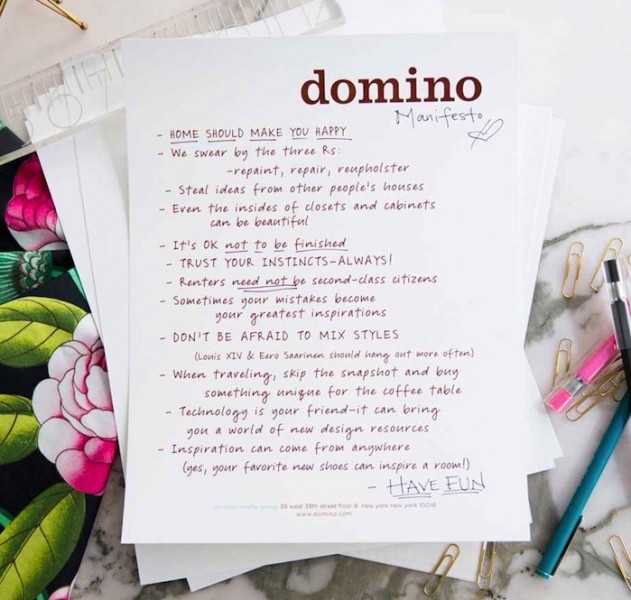 domino
Manifesto
- HOME SHOULD MAKE YOU HAPPY
- We swear by the three Rs:
-repaint, repair, reupholster
- Steal ideas from other people's houses
- Even the insides of closets and cabinets
can be beautiful
- It's OK not to be finished
- TRUST YOUR INSTINCTS-ALWAYS!
- Renters need not be second-class citizens
- Sometimes your mistakes become
your greatest inspirations
- DON'T BE AFRAID TO MIX STYLES
(Louis XIV & Eero Saarinen should hang out more often)
- When traveling, skip the snapshot and buy
something unique for the coffee table
- Technology is your friend-it can bring
you a world of new design resources
- Inspiration can come from anywhere
(yes, your favorite new shoes can inspire a room!)
- HAVE FUN
domino media group 29 west 38th street floor 8 new york new york 10018
www.domino.com